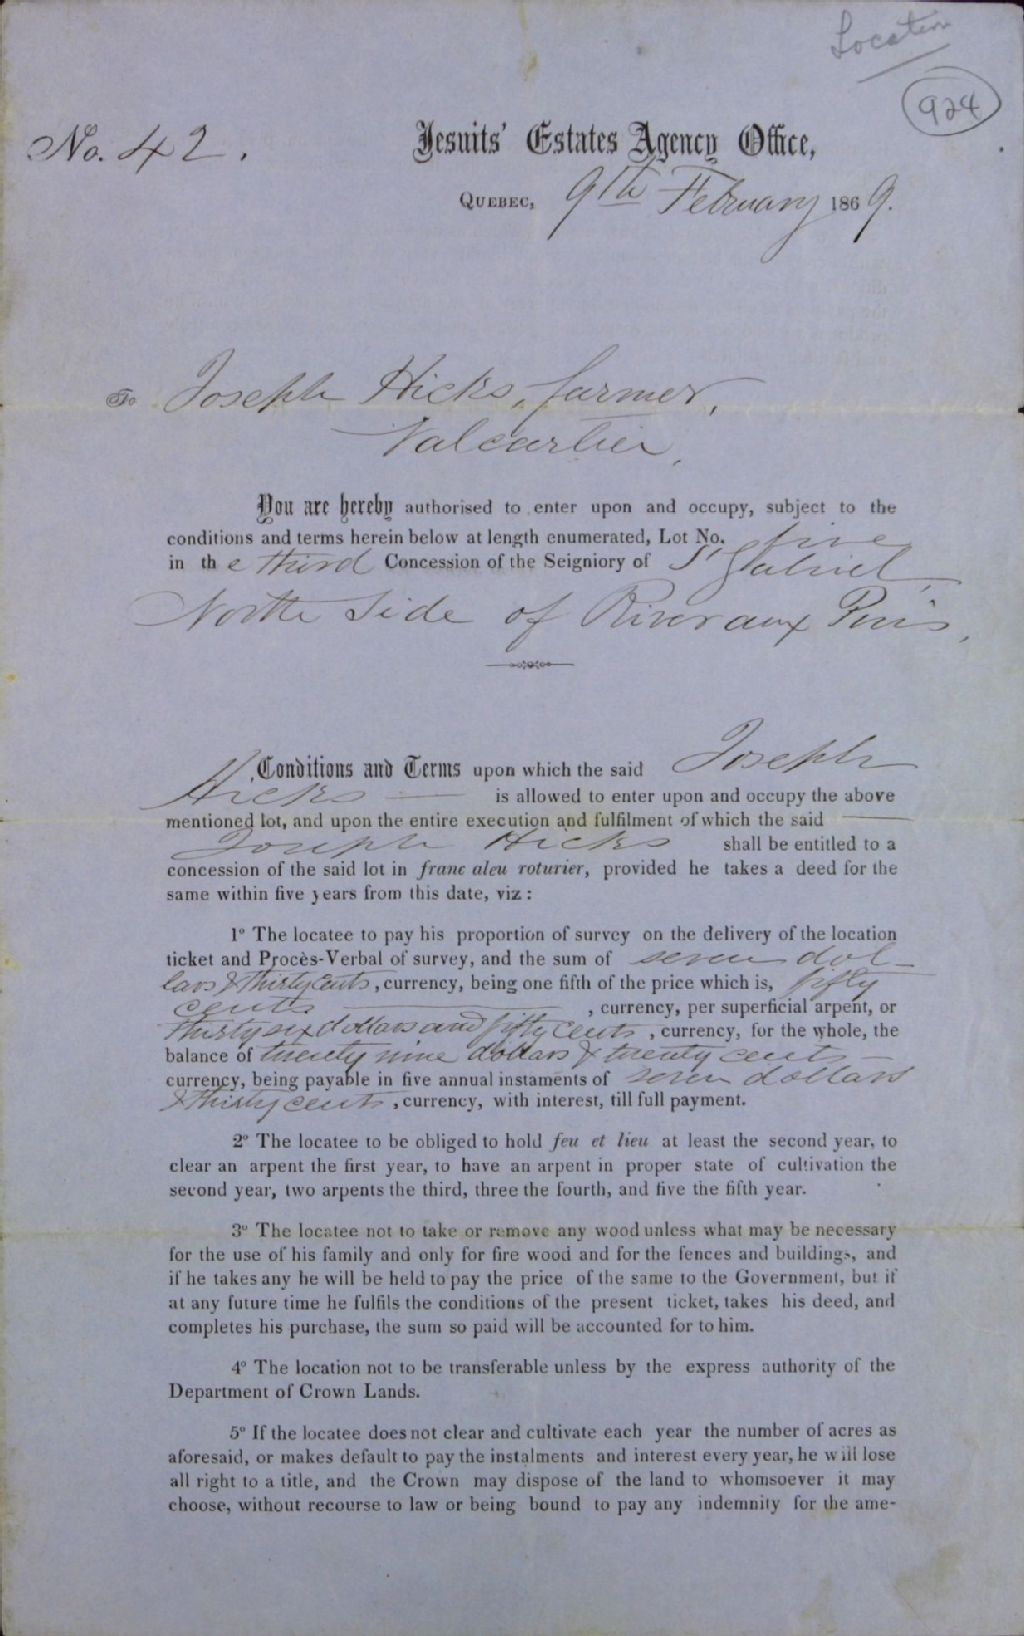 Location
924
No. 42.
Jesuits' Estates Agency Office,
QUEBEC, 9th February 1869.
To Joseph Hicks, farmer,
Valcartier,
You are hereby authorised to enter upon and occupy, subject to the
conditions and terms herein below at length enumerated, Lot No. five
in the third Concession of the Seigniory of St Gabriel,
North Side of River aux Pins,
Conditions and Terms upon which the said Joseph
Hicks — is allowed to enter upon and occupy the above
mentioned lot, and upon the entire execution and fulfilment of which the said —
Joseph Hicks shall be entitled to a
concession of the said lot in franc aleu roturier, provided he takes a deed for the
same within five years from this date, viz :
1° The locatee to pay his proportion of survey on the delivery of the location
ticket and Procès-Verbal of survey, and the sum of seven dol-
lars & thirty cents, currency, being one fifth of the price which is, fifty
cents —, currency, per superficial arpent, or
thirty six dollars and fifty cents, currency, for the whole, the
balance of twenty nine dollars & twenty cents —
currency, being payable in five annual instaments of seven dollars
& thirty cents, currency, with interest, till full payment.
2° The locatee to be obliged to hold feu et lieu at least the second year, to
clear an arpent the first year, to have an arpent in proper state of cultivation the
second year, two arpents the third, three the fourth, and five the fifth year.
3° The locatee not to take or remove any wood unless what may be necessary
for the use of his family and only for fire wood and for the fences and buildings, and
if he takes any he will be held to pay the price of the same to the Government, but if
at any future time he fulfils the conditions of the present ticket, takes his deed, and
completes his purchase, the sum so paid will be accounted for to him.
4° The location not to be transferable unless by the express authority of the
Department of Crown Lands.
5° If the locatee does not clear and cultivate each year the number of acres as
aforesaid, or makes default to pay the instalments and interest every year, he will lose
all right to a title, and the Crown may dispose of the land to whomsoever it may
choose, without recourse to law or being bound to pay any indemnity for the ame-